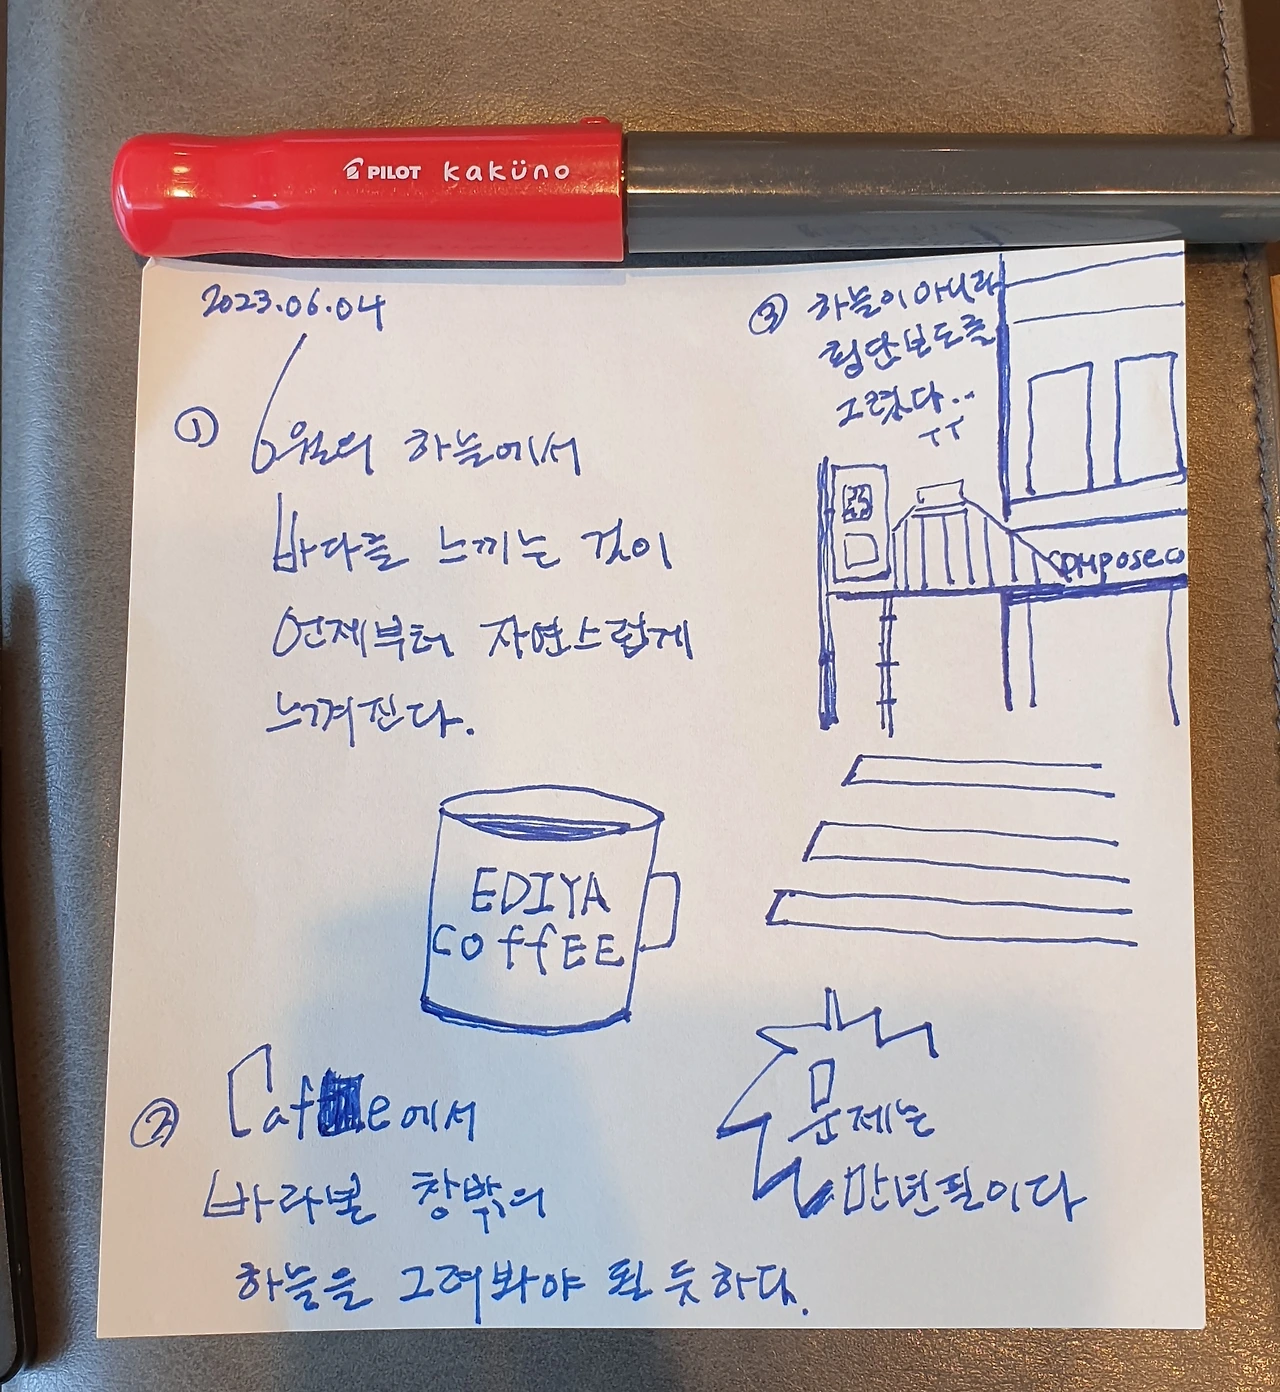 PILOT kaküno
2023.06.04
① 6월의 하늘에서
바다를 느끼는 것이
언제부터 자연스럽게
느껴진다.
EDIYA
COffEE
② Cafe에서
바라본 창밖의
하늘을 그려봐야 될 듯하다.
③ 하늘이 아니라
횡단보도를
그렸다..
ㅜㅜ
COMPOSE CO
문제는
만년필이다